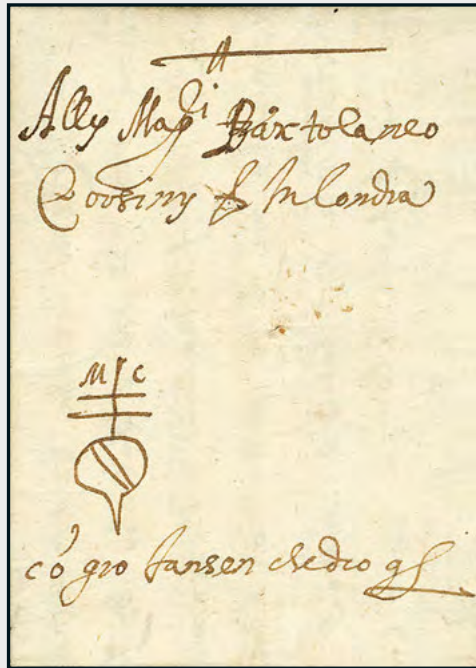 Ally Mag.ci Bartolaneo
Corsiny In Londra
M C
co gio Jansen che dio